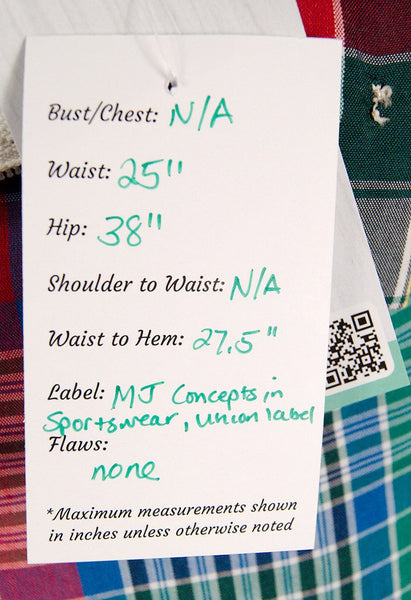 Bust/Chest: N/A
Waist: 25"
Hip: 38"
Shoulder to Waist: N/A
Waist to Hem: 27.5"
Label: MJ Concepts in
Sportswear, Union label
Flaws:
none
*Maximum measurements shown
in inches unless otherwise noted